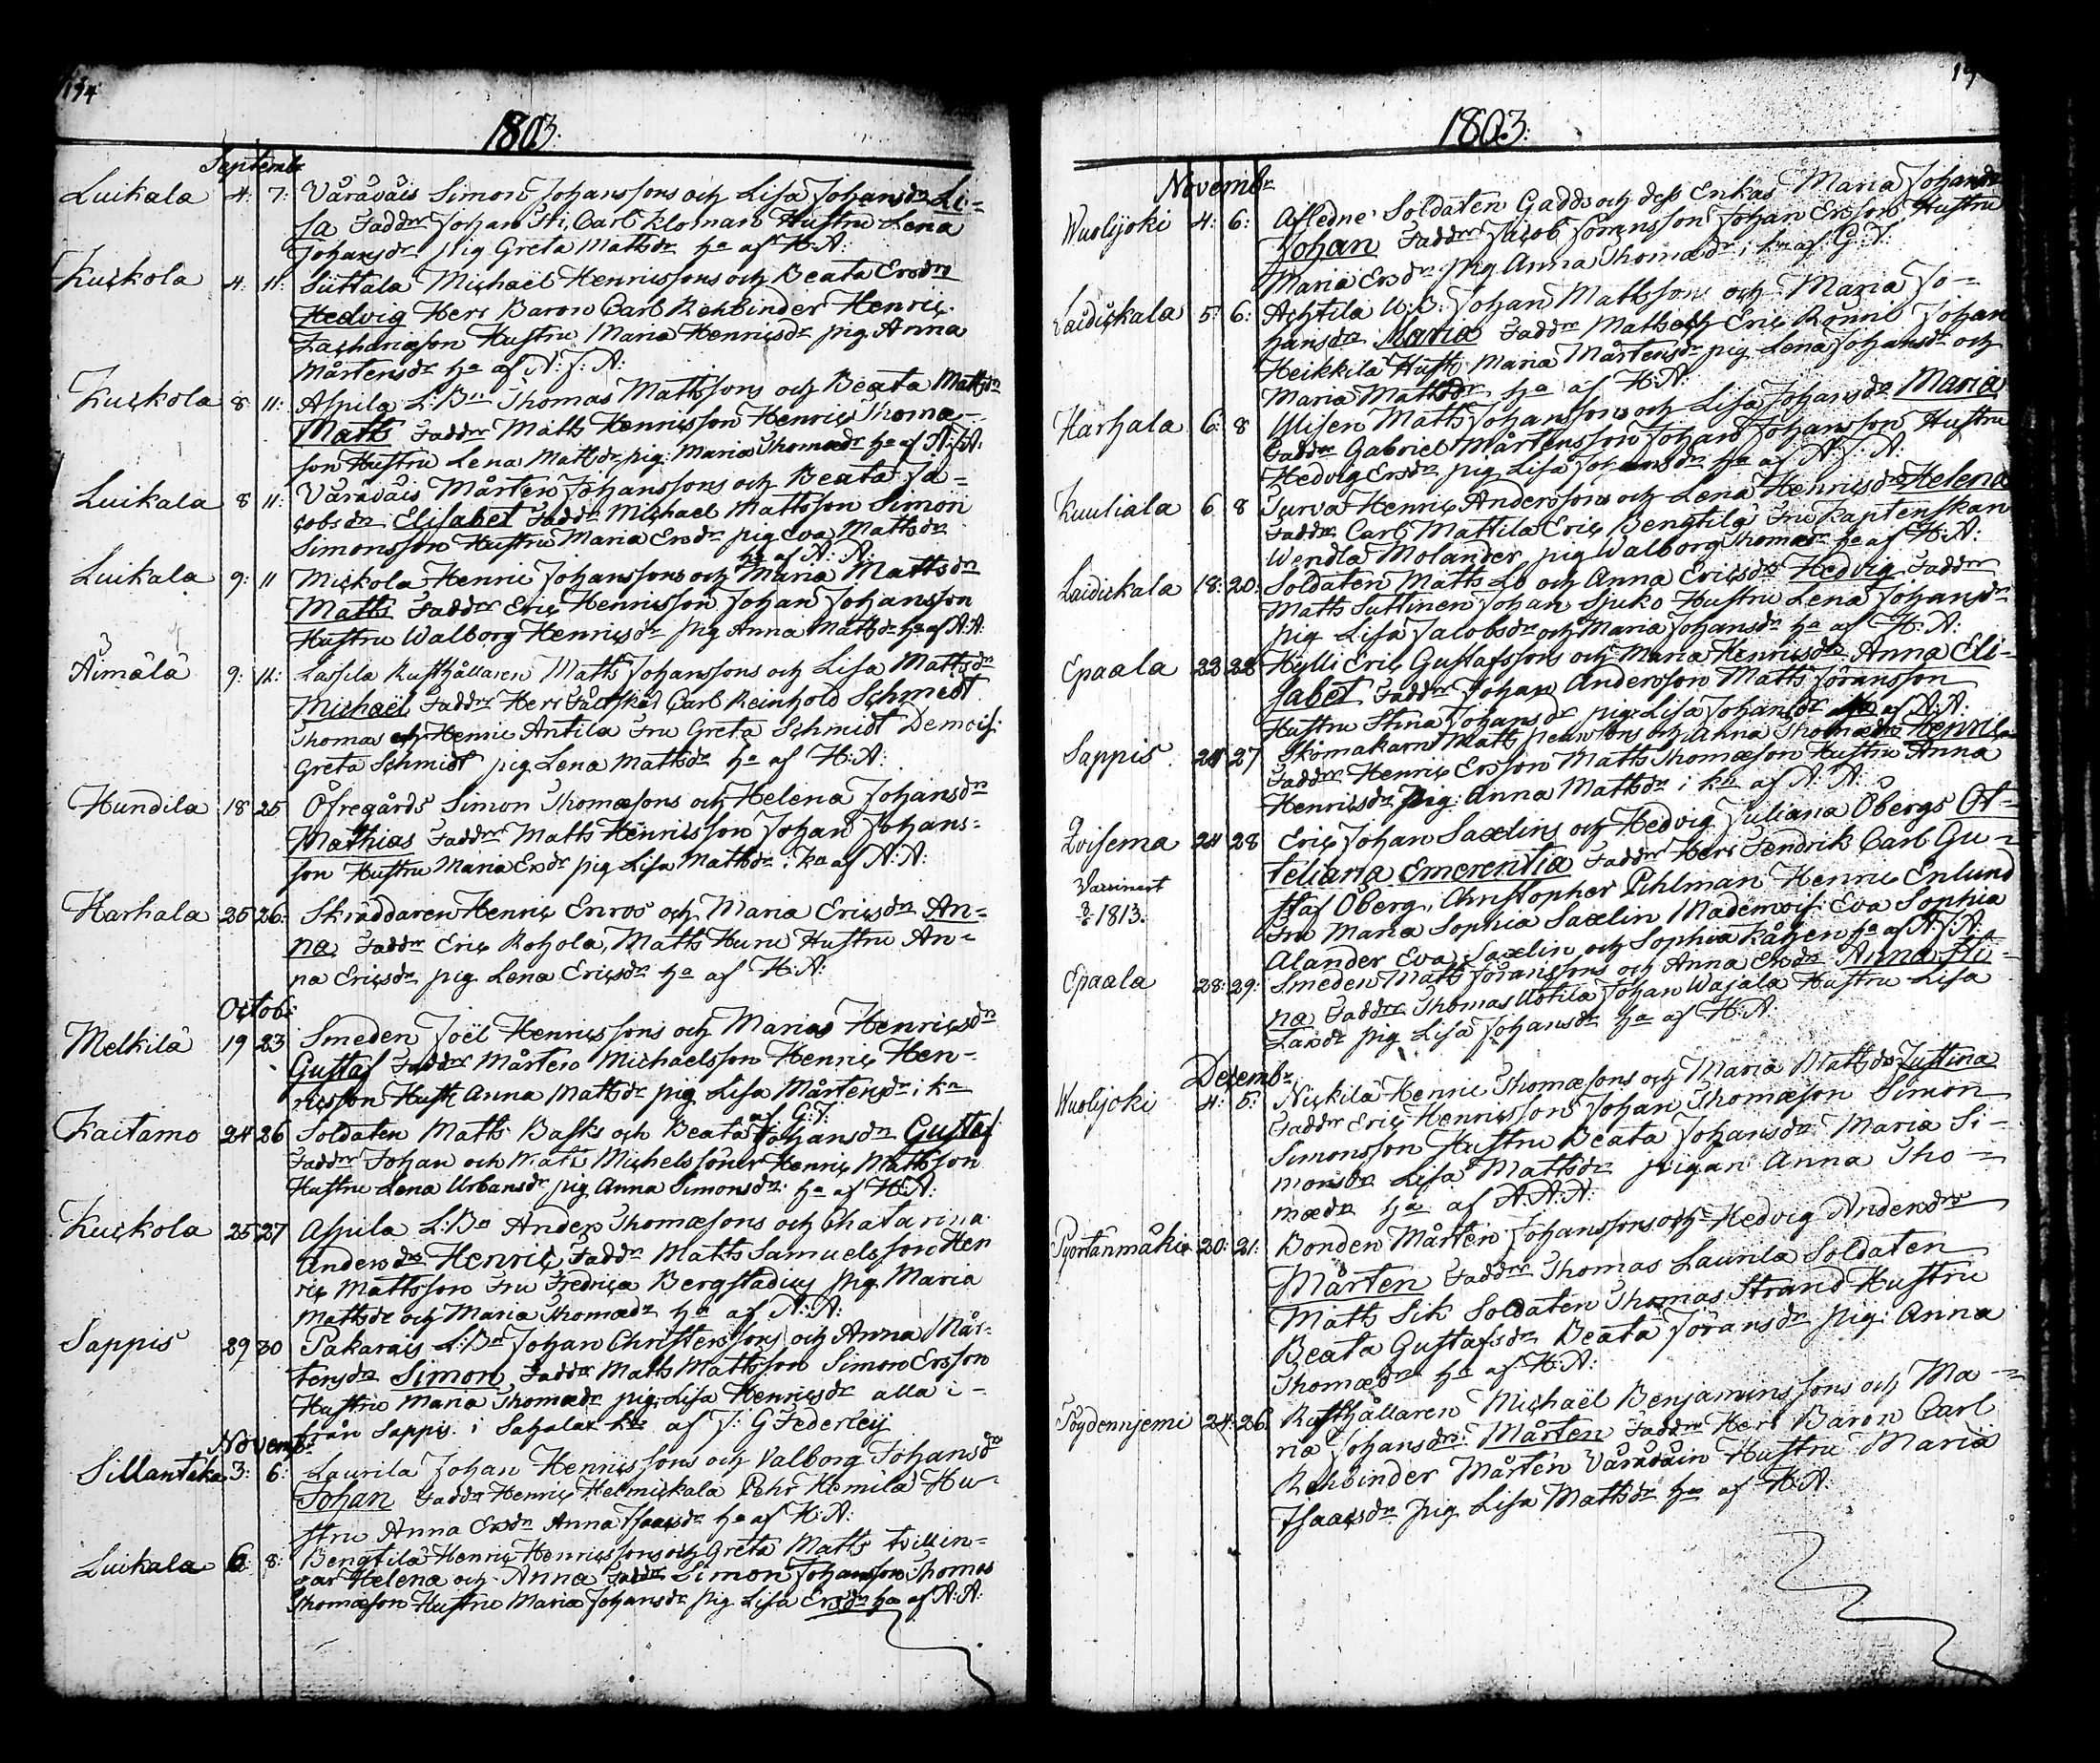 194
1803.
Septembr
Luikala 4: 7: Våråväis Simon Johanssons och Lisa Johansdrs Li-
sa Faddr Johan Iti, Carl Klomars Hustru Lena
Johansdr pig Greta Mattsdr ha af H:A:
Kuckola 4: 11: Suttala Michaël Henricssons och Beata Ersdrs
Hedvig Herr Baron Carl Rehbinder Henric
Zachariæson Hustru Maria Henricsdr pig Anna
Mårtensdr ha af A:J:A:
Kuckola 8 11: Aspila L:Bn Thomas Mattssons och Beata Mattsdrs
Matts Faddrr Matts Henricsson Henric Thomæ-
son Hustru Lena Mattsdr pig: Maria Thomædr ha af A:J:A:
Luikala 8 11: Våråväis Mårten Johanssons och Beata Ja-
cobsdrs Elisabet Faddr Michael Mattsson Simon
Simonsson Hustru Maria Ersdr pig Eva Mattsdr
ha af A: A:
Luikala 9: 11 Mickola Henric Johanssons och Maria Mattsdrs
Matts Faddrr Eric Henricsson Johan Johansson
Hustru Walborg Henricsdr pig Anna Mattsdr ha af A:A:
Äimälä 9: 12: Lassila Rusthållaren Matts Johanssons och Lisa Mattsdrs
Michaël Faddrr Herr Fältskär Carl Reinhold Schmidt
Thomas och Henric Antila Fru Greta Schmidt Demois:
Greta Schmidt pig Lena Mattsdr ha af H:A:
Hundila 18 25 Öfregårds Simon Thomæsons och Helena Johansdrs
Mathias Faddrr Matts Henricsson Johan Johans-
son Hustru Maria Ersdr pig Lisa Mattsdr: i ka af A:A:
Harhala 25 26: Skräddaren Henric Enros och Maria Ericsdrs An-
na Faddrr Eric Rohola, Matts Huru Hustru An-
na Ericsdr pig Lena Ericsdr ha af H:A:
Octob:
Melkilä 19 23 Smeden Joël Henricssons och Marias Henricsdrs
Gustaf Faddrr Mårten Michaelsson Henric Hen-
ricsson Hust: Anna Mattsdr pig Lisa Mårtensdr i kn
af G:F:
Kaitamo 24 26 Soldaten Matts Basks och Beata Johansdrs Gustaf
Faddrr Johan och Matts Michelssöner Henric Mattsson
Hustru Lena Urbansdr pig Anna Simonsdr: ha af H:A:
Kuckola 25 27 Aspila L:Bn Anders Thomæsons och Chatarina
Andersdrs Henric Faddrr Matts Samuelsson Hen
ric Mattsson Fru Fredrica Bergstadius pig Maria
Mattsdr och Maria Thomædr ha af A: A:
Sappis 29 30 Pakarais L:Bn Johan Christerssons och Anna Mår-
tensdrs Simon Faddrr Matts Mattsson Simon Ersson
Hustru Maria Thomædr pig Lisa Henricsdr alla i-
från Sappis i Sahalax af J: G Federley
Novemb:
Sillantaka 3: 6: Laurila Johan Henricssons och Valborg Johansdrs
Johan Faddr Henric Helmickala Pehr Kemilä Hu-
stru Anna Ersdr Anna Isaacsdr ha af H:A:
Luikala 6 8: Bengtilä Henric Henricssons och Greta Matts tvillin-
gar Helena och Anna Faddr Simon Johansson Thomas
Thomæson Hustru Maria Johansdr pig Lisa Ersdr ha af A: A:
1803:
Novembr
Wuolijoki 4: 6: Afledne Soldaten Gadds och dess Enkas Maria Johansdrs
Johan Faddrr Jacob Göransson Johan Ersson Hustru
Maria Ersdr pig Anna Thomædr i kn af G:F:
Laidickala 5: 6: Achtila U:B: Johan Mattssons och Maria Jo-
hansdrs Maria Faddrr Matts och Eric Rönni Johan
Heikkilä Hust: Maria Mårtensdr pig Lena Johansdr och
Maria Mattsdr ha af H:A:
Harhala 6: 8 Ulisen Matts Johanssons och Lisa Johansdrs Maria
Faddr Gabriel Mårtensson Johan Johansson Hustru
Hedvig Ersdr pig Lisa Johansdr ha af A:J:A:
Kuuliala 6 8 Turva Henric Anderssons och Lena Henricsdrs Helena
Faddrr Carl Mattila Eric Bengtilä Fru Kaptenskan
Wendla Molander pig Walborg Thomædr ha af H:A:
Laidickala 18: 20: Soldaten Matts Lo och Anna Ericsdrs Hedvig Faddrr
Matts Suttinen Johan Sjuko Hustru Lena Johansdr
pig Lisa Jacobsdr och Maria Johansdr ha af H: A:
Epaala 23 28 Hylli Eric Gustafssons och Maria Henricsdrs Anna Eli-
sabet Faddrr Johan Andersson Matts Göransson
Hustru Stina Johansdr pig: Lisa Johansdr ha af A:A:
Sappis 24 27 Skomakarn Matts och Anna Thomædrs Henric
Faddrr Henric Ersson Matts Thomæson Hustru Anna
Henricsdr pig: Anna Mattsdr i kn af A: A:
Qvisema 24 28 Eric Johan Saxlins och Hedvig Juliana Öbergs Ot-
teliana Emerentia Faddrr Herr Fendrik Carl Gu-
Vaccinert 1813. staf Öberg, Christopher Pihlman Henric Enlund
Fru Maria Sophia Saxlin Mademois: Eva Sophia
Alander Eva Saxlin och Sophia Kåhen ha af A:J:A:
Epaala 28: 29: Smeden Matts Göranssons och Anna Ersdrs Anna Sti-
na Faddrr Thomas Ustila Johan Wajala Hustru Lisa
Larsdr pig Lisa Johansdr ha af H:A:
Decembr
Wuolijoki 4: 5: Nickilä Henric Thomæsons och Maria Mattsdrs Justina
Faddrr Eric Henricsson Johan Thomæson Simon
Simonsson Hustru Beata Johansdr Maria Si-
monsdr Lisa Mattsdr pigan Anna Tho-
mædr ha af A:A:A:
Pyörtänmäki 20: 21: Bonden Mårten Johanssons och Hedvig Andersdrs
Mårten Faddrr Thomas Laurila Soldaten
Matts Sik Soldaten Thomas Strand Hustru
Beata Gustafsdr Beata Göransdr pig: Anna
Thomædr ha af H:A:
24: 26: Rusthållaren Michaël Benjaminssons och Ma-
ria Johansdrs: Mårten Faddrr Herr Baron Carl
Rehbinder Mårten Våråväin Hustru Maria
Isaacsdr pig Lisa Mattsdr ha af H:A: